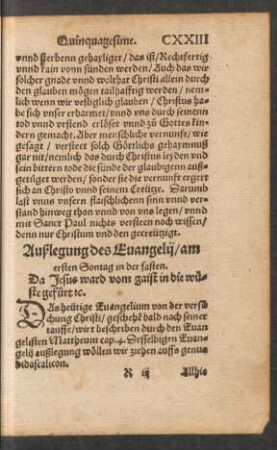 Quinquagesime. CXXIII
vnnd sterbenn gehayliget/ das ist/ Rechtfertig
vnnd rain vonn sünden werden/ Auch das wir
solcher gnade vnnd wolthat Christi allein durch
den glauben mögen tailhafftig werden/ nem-
lich wenn wir vestiglich glauben/ Christus ha-
be sich vnser erbarmet/ vnnd vns durch seinenn
tod vnnd vrstend erlöset vnnd zů Gottes kin-
dern gemacht. Aber menschliche vernunfft/ wie
gesagt/ versteet solch Göttlichs gehaymnuß
gar nit/ nemlich das durch Christus leyden vnd
sein bittern tode die sünde der glaubigenn auß-
getilget werden/ sonder sie die vernunfft ergert
sich an Christo vnnd seinem Creütze. Darumb
last vnns vnsern flaischlichenn sinn vnnd ver-
stand hinweg thon vnnd von vns legen/ vnnd
mit Sanct Paul nichts versteen noch wissen/
denn nur Christum vnd den gecreützigt.
Außlegung des Euangelij/ am
ersten Sontag in der fasten.
Da Jesus ward vom gaist in die wü-
ste gefürt ꝛc.
DAs heütige Euangelium von der versů-
chung Christi/ geschehē bald nach seiner
tauffe/ wirt beschriben durch den Euan
gelisten Mattheum cap. 4. Desselbigen Euan-
gelij außlegung wöllen wir ziehen auffs genus
didascalicon.
R iij Allhie